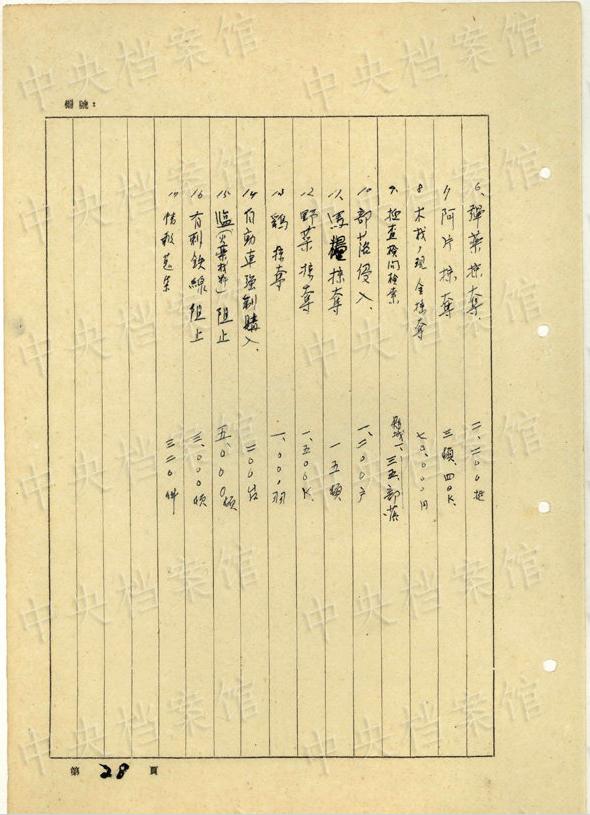 編號：
6、弾薬掠奪 二、二〇〇
7、阿片掠奪 三頓、四〇K.
8、木材、現金掠奪 七〇、〇〇〇円
9、検査検問検索 縣城一、三五、部落
10、部落侵入、 一、二〇〇戸
11、馬糧掠奪 一五頓
12、野菜掠奪 一、五〇〇K.
13、鶏掠奪 一、〇〇〇羽
14、自動車強制購入、 二〇〇台
15、塩(火薬材料)阻止 五、〇〇〇頓
16、有刺鉄線阻止 三、〇〇〇頓
17、情報蒐集 三二〇件
第 28 頁
中央档案馆